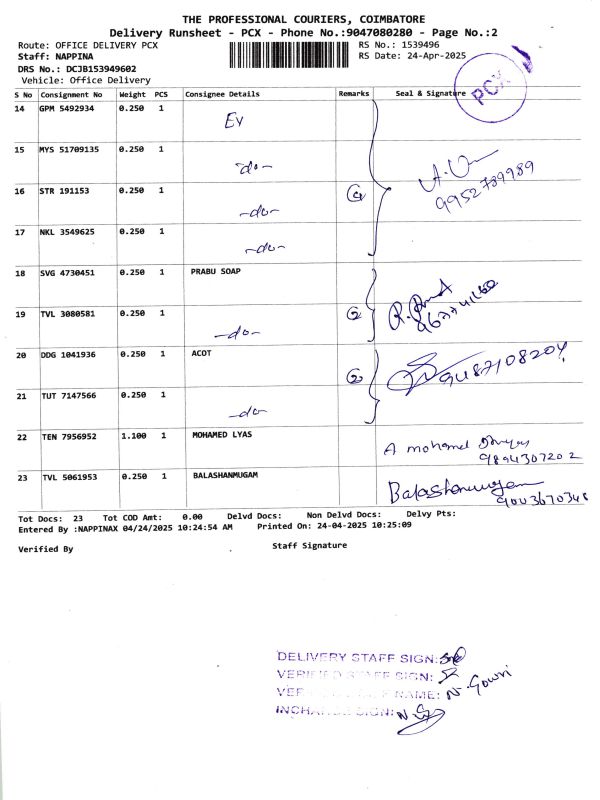 THE PROFESSIONAL COURIERS, COIMBATORE
Delivery Runsheet - PCX - Phone No.:9047080280 - Page No.:2
Route: OFFICE DELIVERY PCX
RS No.: 1539496
Staff: NAPPINA
RS Date: 24-Apr-2025
DRS No.: DCJB153949602
Vehicle: Office Delivery
PCX
S No Consignment No Weight PCS Consignee Details Remarks Seal & Signature
14 GPM 5492934 0.250 1
15 MYS 51709135 0.250 1 -do-
9952789989
16 STR 191153 0.250 1 -do- 4
17 NKL 3549625 0.250 1 -do-
18 SVG 4730451 0.250 1 PRABU SOAP
19 TVL 3080581 0.250 1 -do- 2
20 DDG 1041936 0.250 1 ACOT 2
9487108204
21 TUT 7147566 0.250 1 -do-
22 TEN 7956952 1.100 1 MOHAMED LYAS A mohamed
9894307202
23 TVL 5061953 0.250 1 BALASHANMUGAM Balashanmugam
9003670348
Tot Docs: 23 Tot COD Amt: 0.00 Delvd Docs: Non Delvd Docs: Delvy Pts:
Entered By :NAPPINAX 04/24/2025 10:24:54 AM Printed On: 24-04-2025 10:25:09
Verified By Staff Signature
DELIVERY STAFF SIGN:
VERIFIED STAFF SIGN:
VERIFIED STAFF NAME: N. Gowri
INCHARGE SIGN: